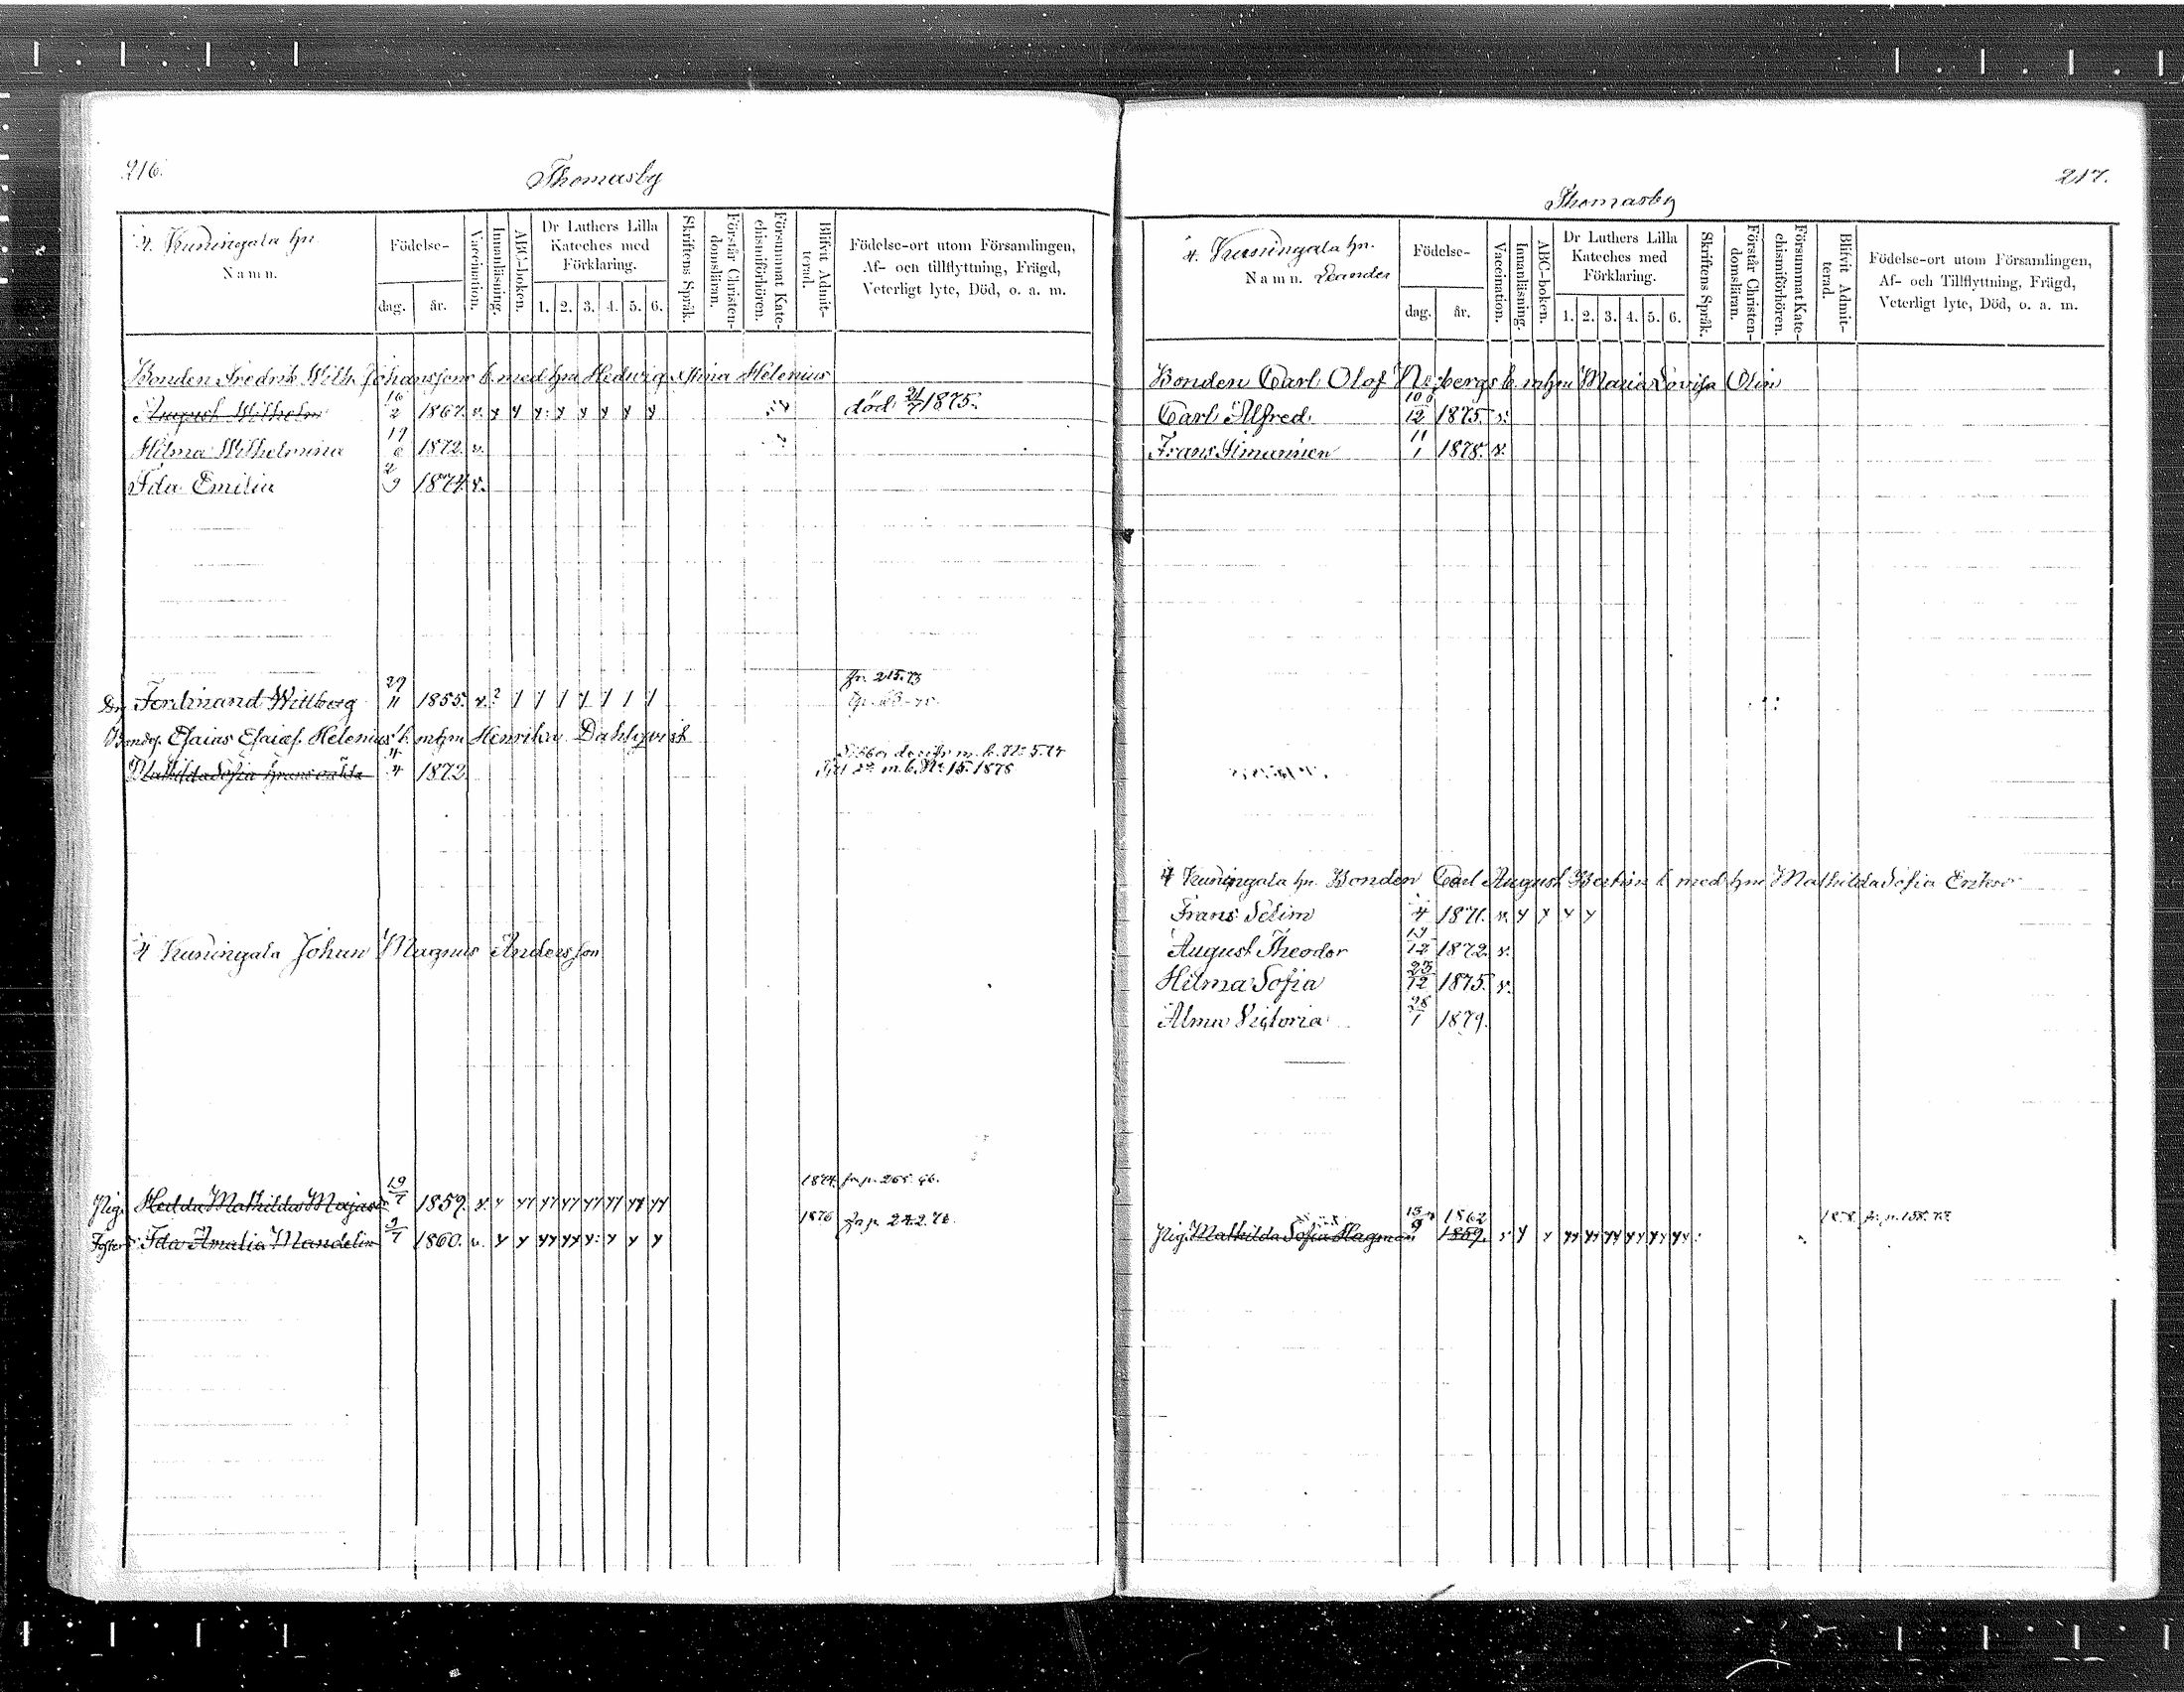 216.
Thomasby
4. Kuningala hn.
Namn.
Födelse-
dag.
år.
Vaccination.
Innanläsning.
ABC-boken.
Dr Luthers Lilla
Kateches med
Förklaring.
1. 2. 3. 4. 5. 6.
Skriftens Språk.
Förstår Christen-
domsläran.
Försummat Kate-
chismiförhören.
Blifvit Admit-
terad.
Födelse-ort utom Församlingen,
Af- och tillflyttning, Frägd,
Veterligt lyte, Död, o. a. m.
Bonden Fredrik Wilh. Johanssons b. med hm Hedwig Stina Helenius
August Wilhelm 16/2 1867. v. y y y: y y y y y död 21/7 1875.
Hilma Wilhelmina 19/6 1872. v.
Ida Emilia 2/9 1874 v.
fr. 215.73
Drg Ferdinand Willberg 29/11 1855. v. ? / / / / / / /
Bondes. Esaias Esaiæs. Helenius b. mhm Henrika Dahlqvist
Mathilda Sofia 4 1872 Till m. b. No 15. 1878
4 Kuningala Johan Magnus Andersson
Pig. Hedda Mathilda 19/7 1859. v. y yy yy yy yy yy yy yy 1874 fr. p. 265.
Ida Amalia Mandelin 9/7 1860. v. y y yy yy y: y y y 1876 fr p. 242.
217.
Thomasby
4. Kuningala hn.
Namn. Leander
Födelse-
dag.
år.
Vaccination.
Innanläsning.
ABC-boken.
Dr Luthers Lilla
Kateches med
Förklaring.
1. 2. 3. 4. 5. 6.
Skriftens Språk.
Förstår Christen-
domsläran.
Försummat Kate-
chismiförhören.
Blifvit Admit-
terad.
Födelse-ort utom Församlingen,
Af- och Tillflyttning, Frägd,
Veterligt lyte, Död, o. a. m.
Bonden Carl Olof b. mhm Maria Lovisa Olin
Carl Alfred 10/12 1875. v.
Frans 11/1 1878. v.
4 Kuningala hn. Bonden Carl August b. med hm Mathilda Sofia
Frans Selim 4 1871. v. y y y y
August Theodor 19/12 1872. v.
Hilma Sofia 23/12 1875. v.
Alma Victoria 28/1 1879.
Pig. Mathilda Sofia Hagman 13/9 1862
1859. v y y yy yy yy yy yy yy fr. p. 158.